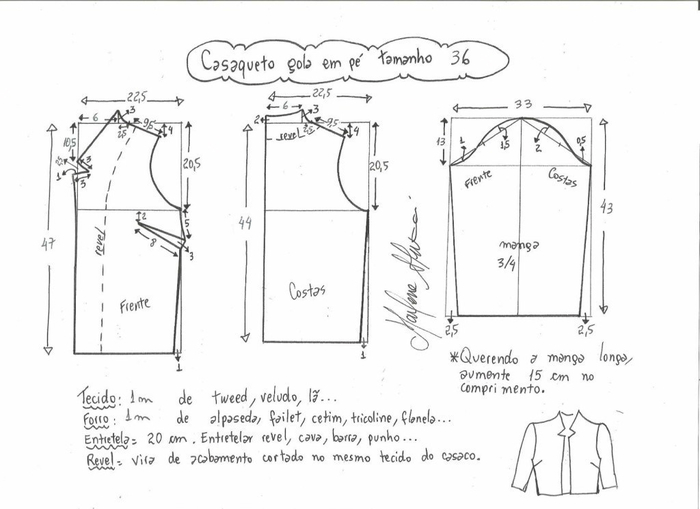 Casaqueto gola em pé tamanho 36
22,5
6
3
2,8
9,5
4
10,5
3
1
3
20,5
47
revel
2
5
8
3
Frente
1
22,5
6
3
2
revel
2,8
9,5
4
20,5
44
Costas
1
33
13
1
1,5
2
0,5
Frente
Costas
43
manga
3/4
2,5
2,5
*Querendo a manga longa,
aumente 15 cm no
comprimento.
Tecido: 1m de tweed, veludo, lã...
Forro: 1m de alpaseda, failet, cetim, tricoline, flanela...
Entretela= 20 cm. Entretelar revel, cava, barra, punho...
Revel= vira de acabamento cortado no mesmo tecido do casaco.